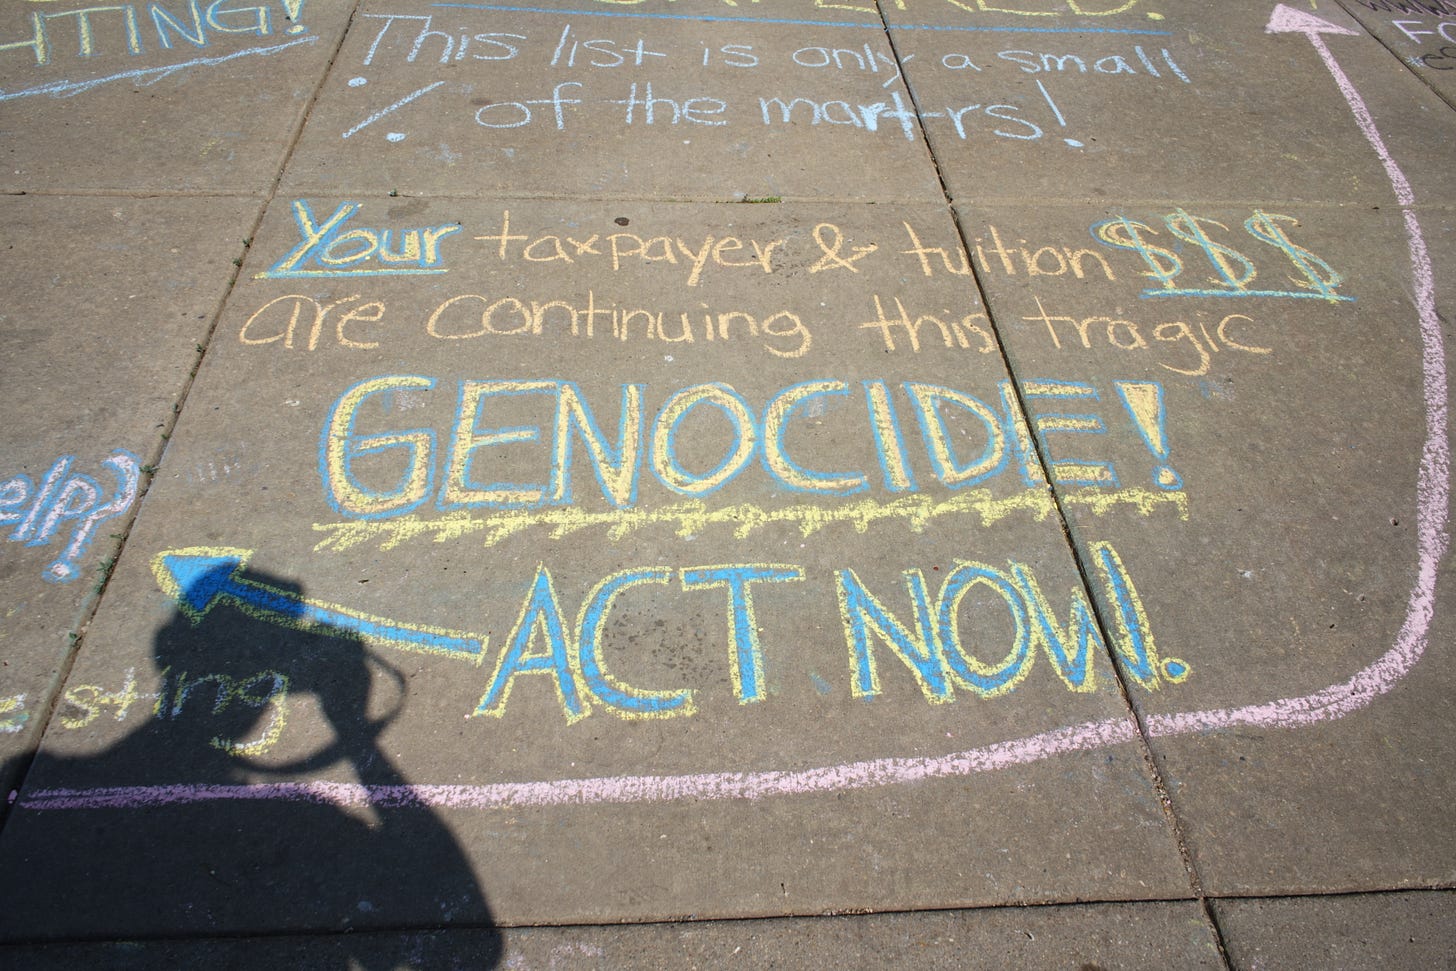 HTING!
This list is only a small
% of the mart-rs!
FO
Your taxpayer & tuition $$$
are continuing this tragic
GENOCIDE!
elp?
ACT NOW.
e sting